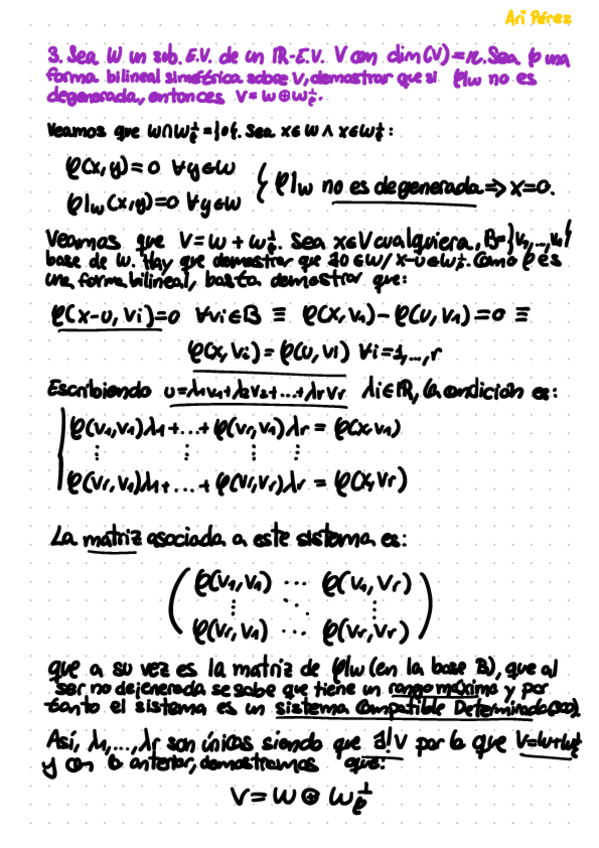 Ari Pérez
3. Sea W un sub. E.V. de un R-E.V. V con dim(V)=n. Sea φ una
forma bilineal simétrica sobre V, demostrar que si φ|w no es
degenerada, entonces V=W⊕Wφ⊥.
Veamos que W∩Wφ⊥={0}. Sea x∈W ∧ x∈Wφ⊥:
φ(x,y)=0 ∀y∈W
φ|w(x,y)=0 ∀y∈W } φ|w no es degenerada ⇒ x=0.
Veamos que V=W+Wφ⊥. Sea x∈V cualquiera, B={v1,...,vr}
base de W. Hay que demostrar que ∃υ∈W/ x-υ∈Wφ⊥. Como φ es
una forma bilineal, basta demostrar que:
φ(x-υ, vi)=0 ∀vi∈B ≡ φ(x,v1)-φ(υ,v1)=0 ≡
φ(x,vi)=φ(υ,vi) ∀i=1,...,r
Escribiendo υ=λ1v1+λ2v2+...+λrvr λi∈R, la condición es:
φ(v1,v1)λ1+...+φ(vr,v1)λr = φ(x,v1)
⋮ ⋮ ⋮ ⋮
φ(vr,v1)λ1+...+φ(vr,vr)λr = φ(x,vr)
La matriz asociada a este sistema es:
φ(v1,v1) ... φ(v1,vr)
⋮ ⋱ ⋮
φ(vr,v1) ... φ(vr,vr)
que a su vez es la matriz de φ|w (en la base B), que al
ser no dejenerada se sabe que tiene un rango máximo y por
tanto el sistema es un sistema Compatible Determinado
Así, λ1,...,λr son únicos siendo que ∃!υ por lo que V=W+Wφ⊥
y con lo anterior, demostramos que:
V=W⊕Wφ⊥